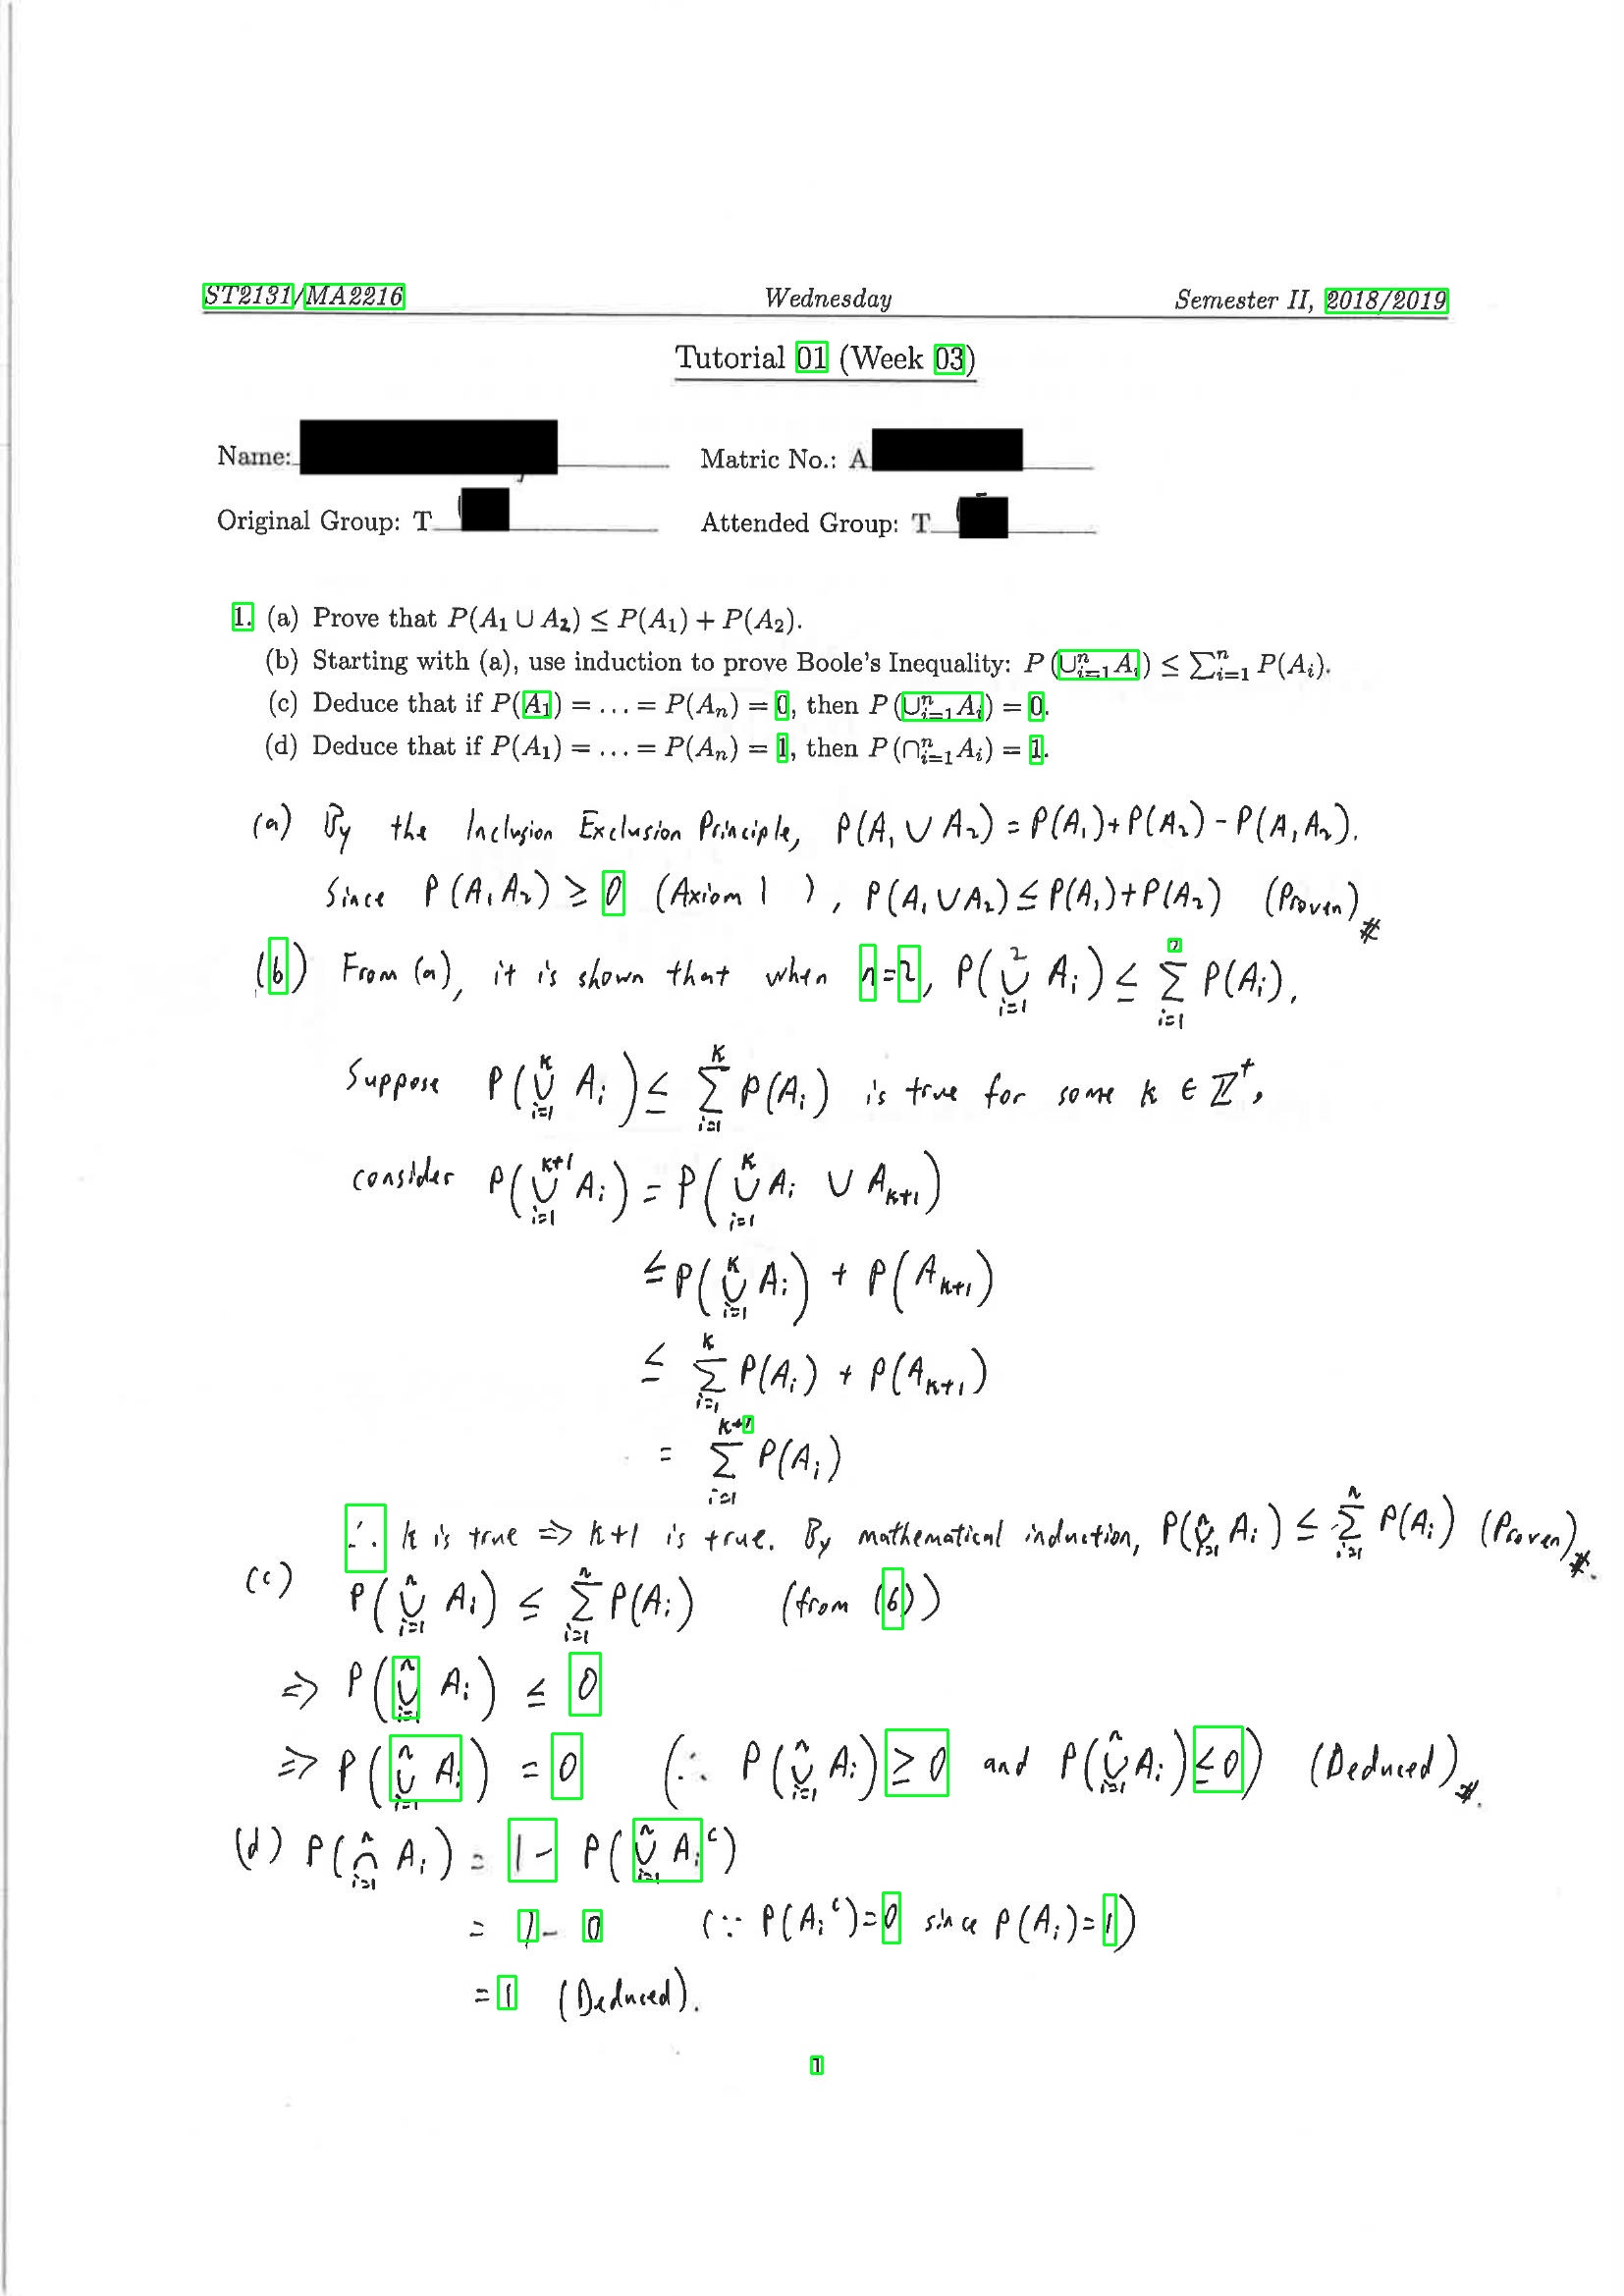 ST2131/MA2216 Wednesday Semester II, 2018/2019
Tutorial 01 (Week 03)
Name: Matric No.: A
Original Group: T Attended Group: T
1. (a) Prove that P(A₁ ∪ A₂) ≤ P(A₁) + P(A₂).
(b) Starting with (a), use induction to prove Boole's Inequality: P(∪ⁿᵢ₌₁Aᵢ) ≤ ∑ⁿᵢ₌₁ P(Aᵢ).
(c) Deduce that if P(A₁) = … = P(Aₙ) = 0, then P(∪ⁿᵢ₌₁Aᵢ) = 0.
(d) Deduce that if P(A₁) = … = P(Aₙ) = 1, then P(∩ⁿᵢ₌₁Aᵢ) = 1.
(a) By the Inclusion Exclusion Principle, P(A₁ ∪ A₂) = P(A₁)+P(A₂) - P(A₁A₂).
Since P(A₁A₂) ≥ 0 (Axiom 1 ), P(A₁ ∪ A₂) ≤ P(A₁)+P(A₂) (Proven)#
(b) From (a), it is shown that when n=2, P(∪²ᵢ₌₁ Aᵢ) ≤ ∑²ᵢ₌₁ P(Aᵢ).
Suppose P(∪ᵏᵢ₌₁ Aᵢ) ≤ ∑ᵏᵢ₌₁ P(Aᵢ) is true for some k ∈ ℤ⁺,
consider P(∪ᵏ⁺¹ᵢ₌₁ Aᵢ) = P(∪ᵏᵢ₌₁ Aᵢ ∪ Aₖ₊₁)
≤ P(∪ᵏᵢ₌₁ Aᵢ) + P(Aₖ₊₁)
≤ ∑ᵏᵢ₌₁ P(Aᵢ) + P(Aₖ₊₁)
= ∑ᵏ⁺¹ᵢ₌₁ P(Aᵢ)
∴ k is true ⇒ k+1 is true. By mathematical induction, P(∪ⁿᵢ₌₁ Aᵢ) ≤ ∑ⁿᵢ₌₁ P(Aᵢ) (Proven)#.
(c) P(∪ⁿᵢ₌₁ Aᵢ) ≤ ∑ⁿᵢ₌₁ P(Aᵢ) (from (b))
⇒ P(∪ⁿᵢ₌₁ Aᵢ) ≤ 0
⇒ P(∪ⁿᵢ₌₁ Aᵢ) = 0 (∵ P(∪ⁿᵢ₌₁ Aᵢ) ≥ 0 and P(∪ⁿᵢ₌₁ Aᵢ) ≤ 0) (Deduced)#.
(d) P(∩ⁿᵢ₌₁ Aᵢ) = 1 - P(∪ⁿᵢ₌₁ Aᵢᶜ)
= 1 - 0 (∵ P(Aᵢᶜ)=0 since P(Aᵢ)=1)
= 1 (Deduced).
1